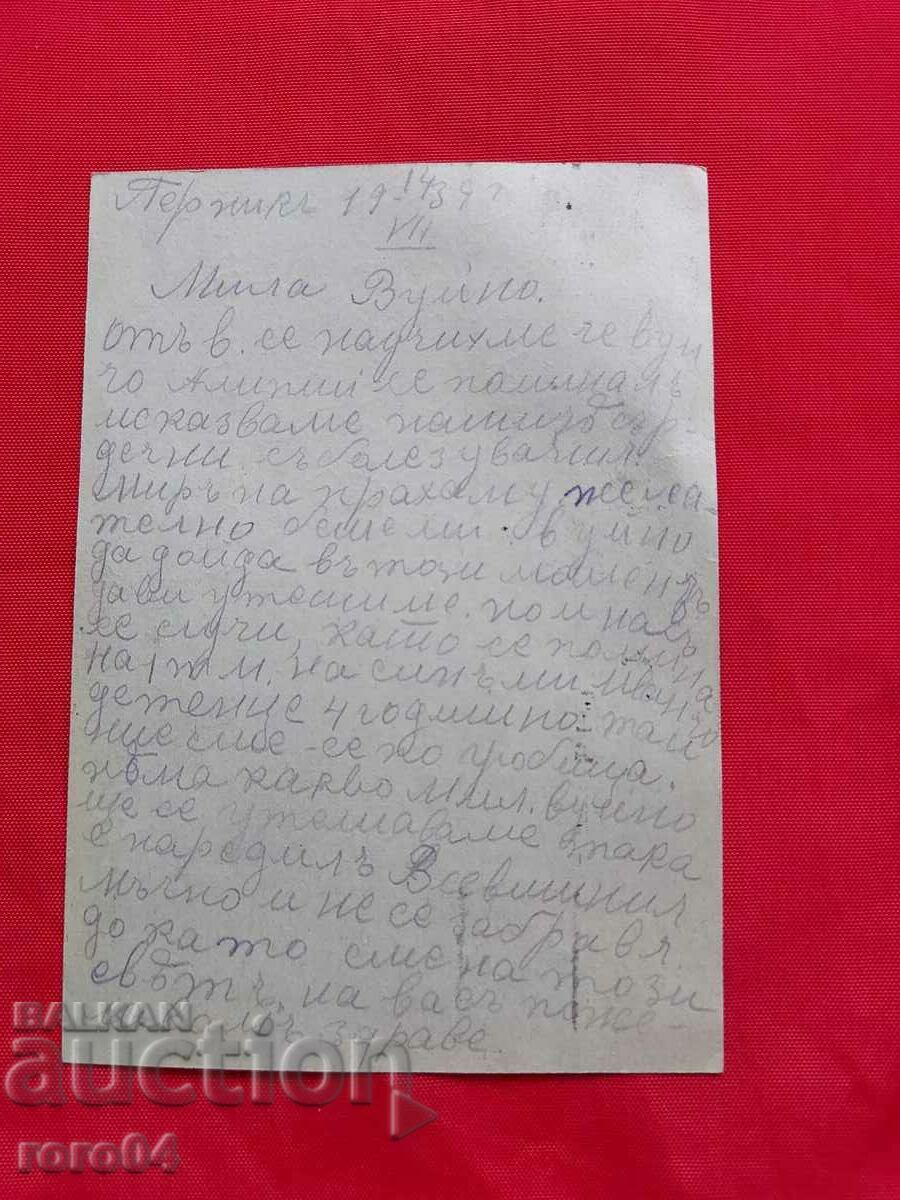 Перникъ 19 14/VII 39 г
Мила Вуйно.
отъ в. се научихме че вуй
чо се поминалъ
исказваме нашитѣ сър-
дечни съболезувания.
миръ на праха му жела-
телно беше ми вуйно
да дойда въ този моментъ
да ви утешиме. пом насъ
се случи, като се помина
на синъ ми Иванъ
детенце 4 годишно
ние сме се по гробища.
нѣма какво мил. вуйно
ще се утешаваме така
е наредилъ Всевишния
мъчно и не се забравя.
до като сме на този
свѣтъ, на васъ поже-
здраве.
BALKAN
auction
roro04